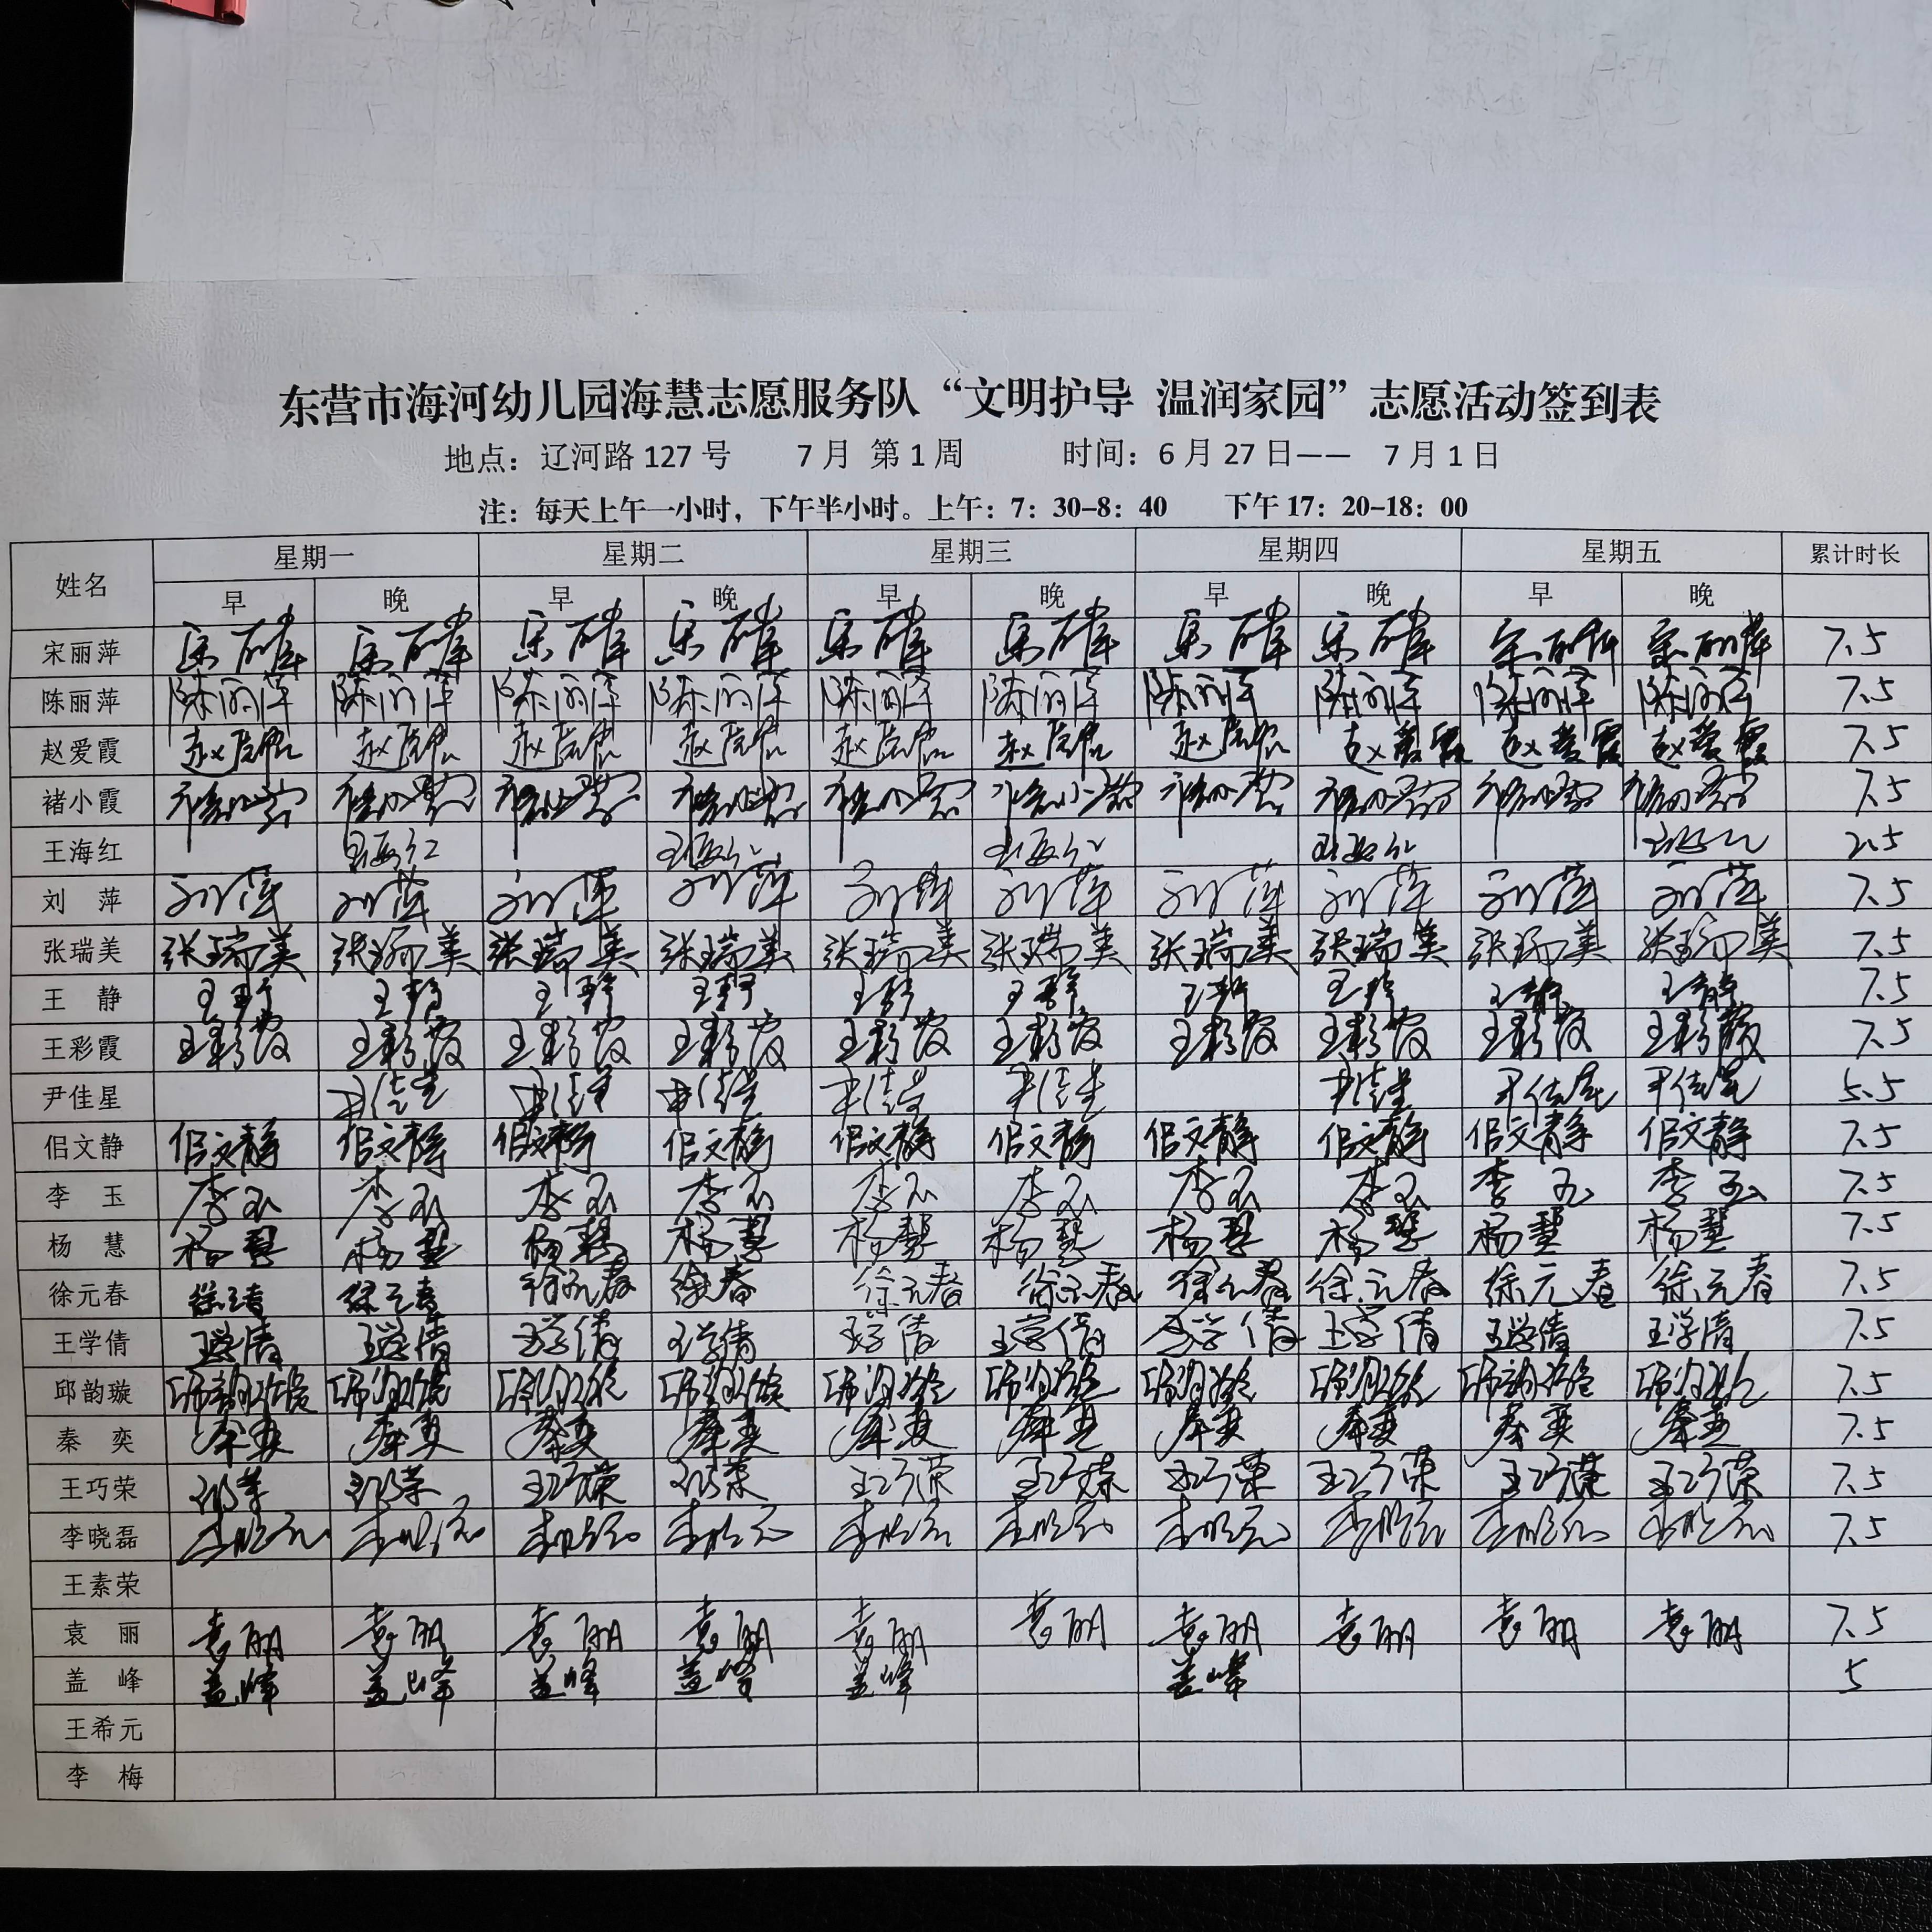 东营市海河幼儿园海慧志愿服务队“文明护导 温润家园”志愿活动签到表
地点：辽河路 127 号 7 月 第 1 周 时间：6 月 27 日—— 7 月 1 日
注：每天上午一小时，下午半小时。上午：7：30-8：40 下午 17：20-18：00
姓名 星期一 星期二 星期三 星期四 星期五 累计时长
早 晚 早 晚 早 晚 早 晚 早 晚
宋丽萍 宋丽萍 宋丽萍 宋丽萍 宋丽萍 宋丽萍 宋丽萍 宋丽萍 宋丽萍 宋丽萍 宋丽萍 7.5
陈丽萍 陈丽萍 陈丽萍 陈丽萍 陈丽萍 陈丽萍 陈丽萍 陈丽萍 陈丽萍 陈丽萍 陈丽萍 7.5
赵爱霞 赵爱霞 赵爱霞 赵爱霞 赵爱霞 赵爱霞 赵爱霞 赵爱霞 赵爱霞 赵爱霞 赵爱霞 7.5
褚小霞 褚小霞 褚小霞 褚小霞 褚小霞 褚小霞 褚小霞 褚小霞 褚小霞 褚小霞 褚小霞 7.5
王海红 王海红 王海红 王海红 王海红 王海红 2.5
刘 萍 刘萍 刘萍 刘萍 刘萍 刘萍 刘萍 刘萍 刘萍 刘萍 刘萍 7.5
张瑞美 张瑞美 张瑞美 张瑞美 张瑞美 张瑞美 张瑞美 张瑞美 张瑞美 张瑞美 张瑞美 7.5
王 静 王静 王静 王静 王静 王静 王静 王静 王静 王静 王静 7.5
王彩霞 王彩霞 王彩霞 王彩霞 王彩霞 王彩霞 王彩霞 王彩霞 王彩霞 王彩霞 王彩霞 7.5
尹佳星 尹佳星 尹佳星 尹佳星 尹佳星 尹佳星 尹佳星 尹佳星 尹佳星 5.5
佀文静 佀文静 佀文静 佀文静 佀文静 佀文静 佀文静 佀文静 佀文静 佀文静 佀文静 7.5
李 玉 李玉 李玉 李玉 李玉 李玉 李玉 李玉 李玉 李玉 李玉 7.5
杨 慧 杨慧 杨慧 杨慧 杨慧 杨慧 杨慧 杨慧 杨慧 杨慧 杨慧 7.5
徐元春 徐元春 徐元春 徐元春 徐元春 徐元春 徐元春 徐元春 徐元春 徐元春 徐元春 7.5
王学倩 王学倩 王学倩 王学倩 王学倩 王学倩 王学倩 王学倩 王学倩 王学倩 王学倩 7.5
邱韵璇 邱韵璇 邱韵璇 邱韵璇 邱韵璇 邱韵璇 邱韵璇 邱韵璇 邱韵璇 邱韵璇 邱韵璇 7.5
秦 奕 秦奕 秦奕 秦奕 秦奕 秦奕 秦奕 秦奕 秦奕 秦奕 秦奕 7.5
王巧荣 王巧荣 王巧荣 王巧荣 王巧荣 王巧荣 王巧荣 王巧荣 王巧荣 王巧荣 王巧荣 7.5
李晓磊 李晓磊 李晓磊 李晓磊 李晓磊 李晓磊 李晓磊 李晓磊 李晓磊 李晓磊 李晓磊 7.5
王素荣
袁 丽 袁丽 袁丽 袁丽 袁丽 袁丽 袁丽 袁丽 袁丽 袁丽 袁丽 7.5
盖 峰 盖峰 盖峰 盖峰 盖峰 盖峰 盖峰 5
王希元
李 梅